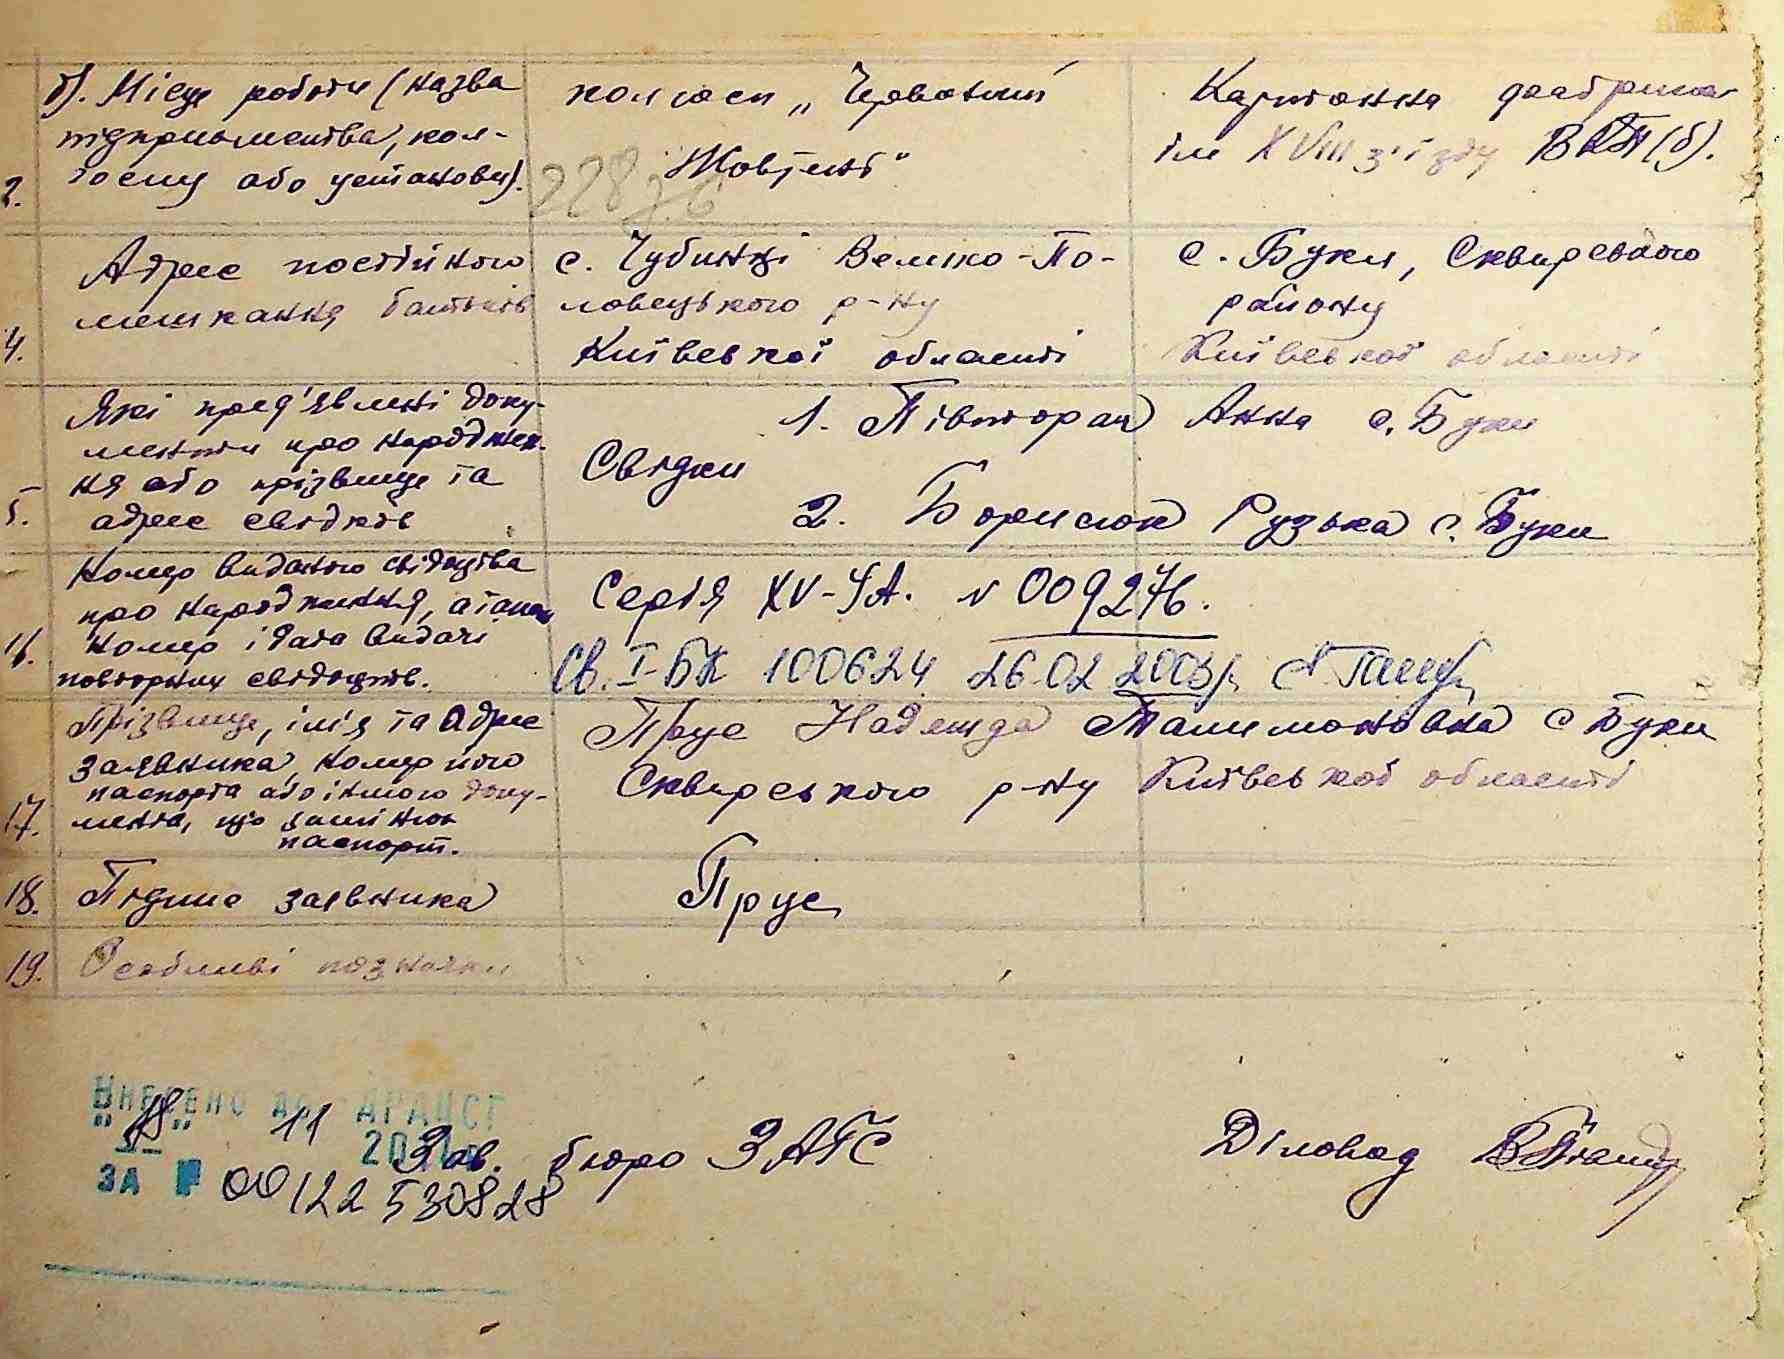 б). Місце роботи (назва
підприьменства, кол-
госпу або установи).
2.
колгосп „Червоний
Жовтень"
228
Картонна фабрика
ім XVIII з'їзду ВКП(б).
4.
Адрес постійного
мешкання батьків
с. Чубинці Велико-По-
ловецького р-ну
Київської області
с. Буки, Сквирського
району
Київської області
5.
Які пред'явлені доку-
менти про народжен-
ня або прізвище та
адрес свідків
Свідки
1. Півторак Анна с. Буки
2. Борисюк Рузька с. Буки
16.
Номер виданого свідоцтва
про народження, а також
номер і дата видачі
повторних свідоцтв.
Серія XV-УА. N 009276.
Св. I-БК 100624 26.02 2003р.
17.
Прізвище, ім'я та адрес
заявника, номер його
паспорта або іншого доку-
мента, що замінює
паспорт.
Прус Надежда Талимоновна с Буки
Сквирського р-ну Київської області
18.
Підпис заявника
Прус
19.
Особливі позначки
ВНЕСЕНО ДО ДРАЦСГ
„18" 11
20
ЗА № 00122530828
Зав. бюро ЗАГС
Діловод